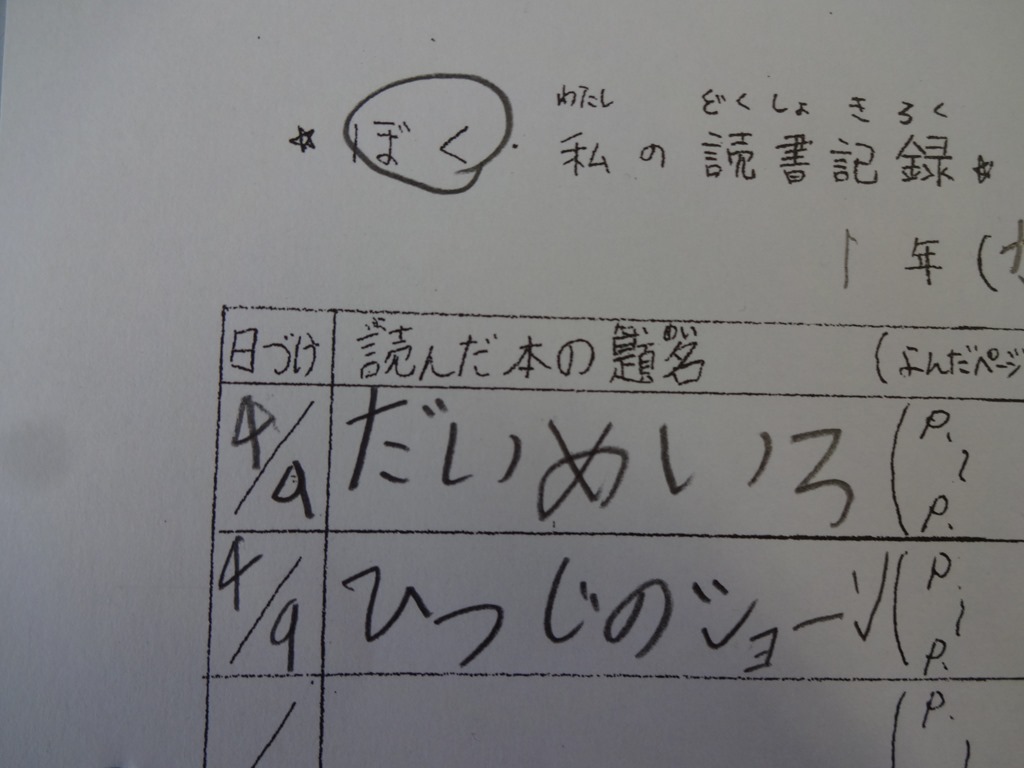 ☆ ぼく・私の読書記録 ☆
わたし どくしょきろく
1年(
日づけ 読んだ本の題名 (よんだページ
4/9 だいめいろ (P. ~ P.
4/9 ひつじのショーン (P. ~ P.
/ (P. ~